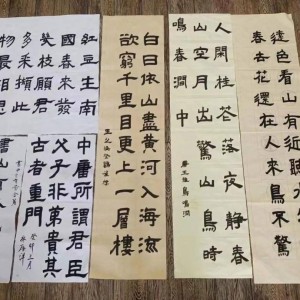 色看山有
春去花還在人來鳥不驚
人閒桂花落夜静春
山空月出驚山鳥時
鳴春澗中
白日依山盡黃河入海流
欲窮千里目更上一層樓
紅豆生南
國春來發
幾枝願君
多采擷此
物最相思
中庸所謂君臣
父子非第貴其
古者重門
癸卯三月
書山有